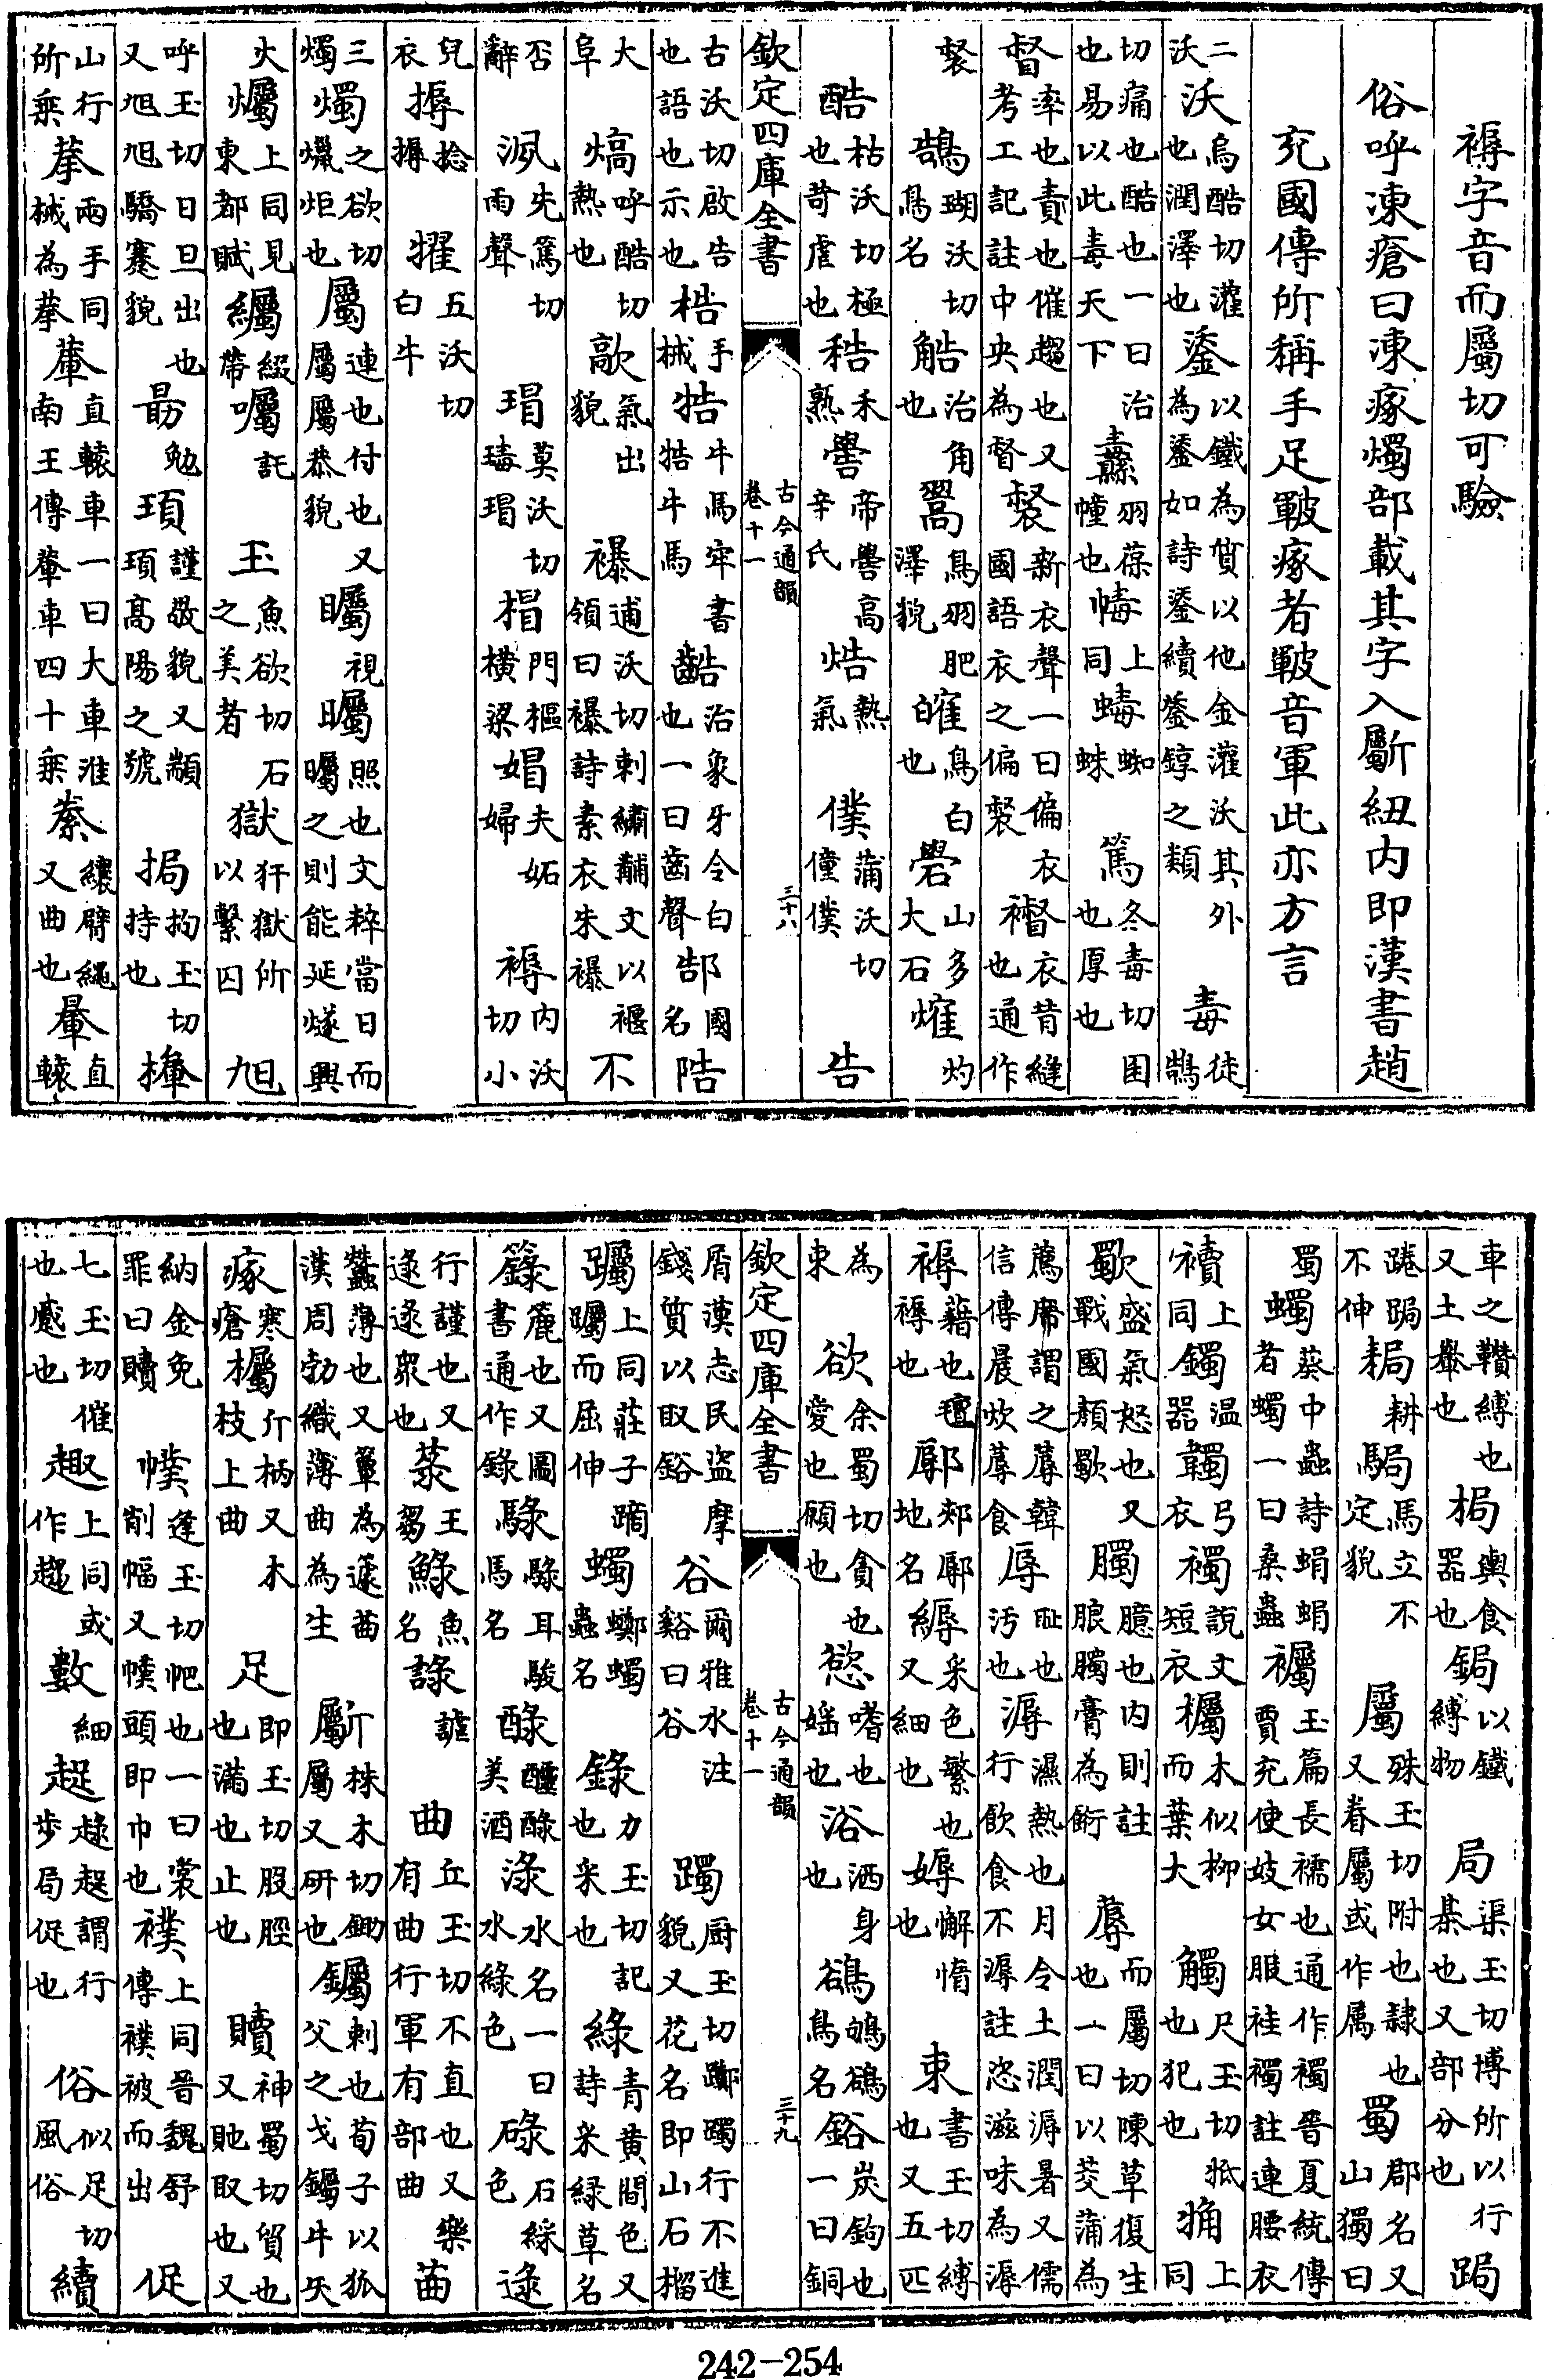 褥字音而屬切可驗
俗呼凍瘡曰凍瘃燭部載其字入斸紐内即漢書趙
充國傳所稱手足皸瘃者皸音軍此亦方言
二沃沃烏酷切灌也潤澤也鋈以鐵為質以他金灌沃其外為鋈如詩鋈續鋈錞之類毒徒鵚
切痛也酷也一曰治也易以此毒天下纛羽葆幢也上同蝳蜘蛛篤冬毒切困也厚也
督率也責也催趨也又考工記註中央為督裻新衣聲一曰偏衣國語衣之偏裻衣昔縫也通作
裻鵠瑚沃切鳥名治角也翯鳥羽肥澤貌鳥白也礐山多大石㷶灼
酷枯沃切極也苛虐也秸禾熟嚳帝嚳高辛氏焅熱氣僕蒲沃切僮僕告
欽定四庫全書 古今通韻卷十一 三十八
古沃切啟告也語也示也梏手械牿牛馬牢書牿牛馬治象牙令白也一曰齒聲郜國名陪
大阜熇呼酷切熱也歊氣出貌襮逋沃切刺繡黼文以褗領曰襮詩素衣朱襮不
否辭先篤切雨聲瑁莫沃切瑇瑁楣門樞橫梁媢夫妬婦褥内沃切小
兒衣搙捻搙五沃切白牛
三燭燭之欲切爥炬也屬連也付也又屬屬恭貌矚視曯照也文粹當日而曯之則能延燧興
火爥上同見東都賦綴帶囑託玉魚欲切石之美者獄犴獄所以繫囚旭
呼玉切日旦出也又旭旭驕蹇貌勗勉頊謹敬貌又顓頊高陽之號挶拘玉切持也
山行所乘兩手同械為輂直轅車一曰大車淮南王傳輂車四十乘纕臂繩又曲也直轅
車之鞼縛也又土轝也梮輿食器也鋦以鐵縛物局渠玉切博所以行棊也又部分也跼
踡跼不伸耕駶馬立不定貌屬殊玉切附也隸也又眷屬或作属蜀郡名又山獨曰
蜀蠋葵中蟲詩蜎蜎者蠋一曰桑蟲襡玉篇長襦也通作襡晉夏統傳賈充使妓女服袿襡註連腰衣
上同鐲温器韣弓衣襡說文短衣木似柳而葉大觸尺玉切抵也犯也上同
歜盛氣怒也又戰國顏歜臅臆也内則註腸臅膏為䬳蓐而屬切陳草復生也一曰以茭蒲為
薦席謂之蓐韓信傳晨炊蓐食辱恥也汚也溽濕熱也月令土潤溽暑又儒行飲食不溽註恣滋味為溽
褥藉也氊褥也鄏郟鄏地名縟采色繁也又細也媷懈惰也束書玉切縛也又五匹
為束欲余蜀切貪也愛也願也慾嗜也婬也浴洒身也鵒鴝鵒鳥名鋊炭鉤也一曰銅
欽定四庫全書 古今通韻卷十一 三十九
屑漢志民盜摩錢質以取鋊谷爾雅水注谿曰谷躅厨玉切躑躅行不進貌又花名即山石榴
躅上同莊子蹢躅而屈伸蠋蠋蟲名錄力玉切記也采也綠青黄間色又詩采綠草名
籙簏也又圖書通作錄騄騄耳駿馬名醁醽醁美酒淥水名一曰水綠色碌石綵色逯
行謹也又逯逯眾也菉王芻魚名謰曲丘玉切不直也又樂有曲行軍有部曲苗
蠶薄也又簟為籧苗漢周勃織薄曲為生斸株木切鋤屬又斫也钃刺也荀子以狐父之戈钃牛矢
瘃寒瘡斤柄又木枝上曲足即玉切股脛也滿也止也贖神蜀切貿也又貤取也又
納金免罪曰贖幞逢玉切帊也一曰裳削幅又幞頭即巾也襆上同晉魏舒傳襆被而出促
七玉切催也慼也趣上同或作趨數細趗趢趗謂行步局促也俗似足切風俗續
242-254